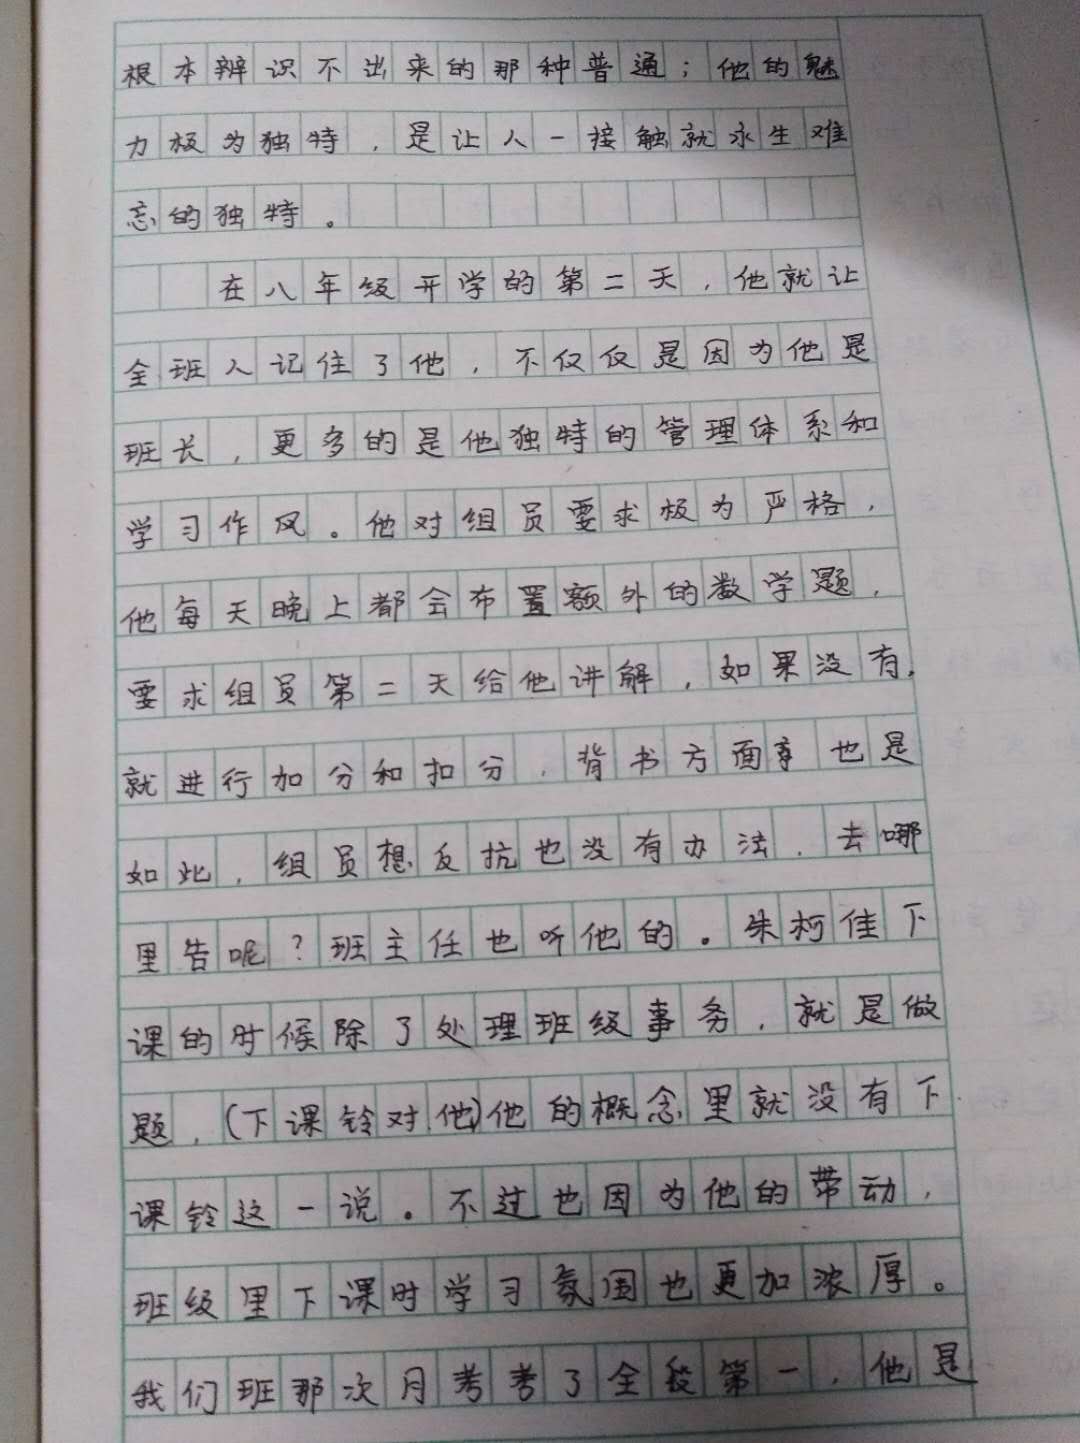 根本辨识不出来的那种普通；他的魅
力极为独特，是让人一接触就永生难
忘的独特。
在八年级开学的第二天，他就让
全班人记住了他，不仅仅是因为他是
班长，更多的是他独特的管理体系和
学习作风。他对组员要求极为严格，
他每天晚上都会布置额外的数学题，
要求组员第二天给他讲解，如果没有，
就进行加分和扣分，背书方面事也是
如此，组员想反抗也没有办法，去哪
里告呢？班主任也听他的。朱柯佳下
课的时候除了处理班级事务，就是做
题，（下课铃对他）他的概念里就没有下
课铃这一说。不过也因为他的带动，
班级里下课时学习氛围也更加浓厚。
我们班那次月考考了全段第一，他是